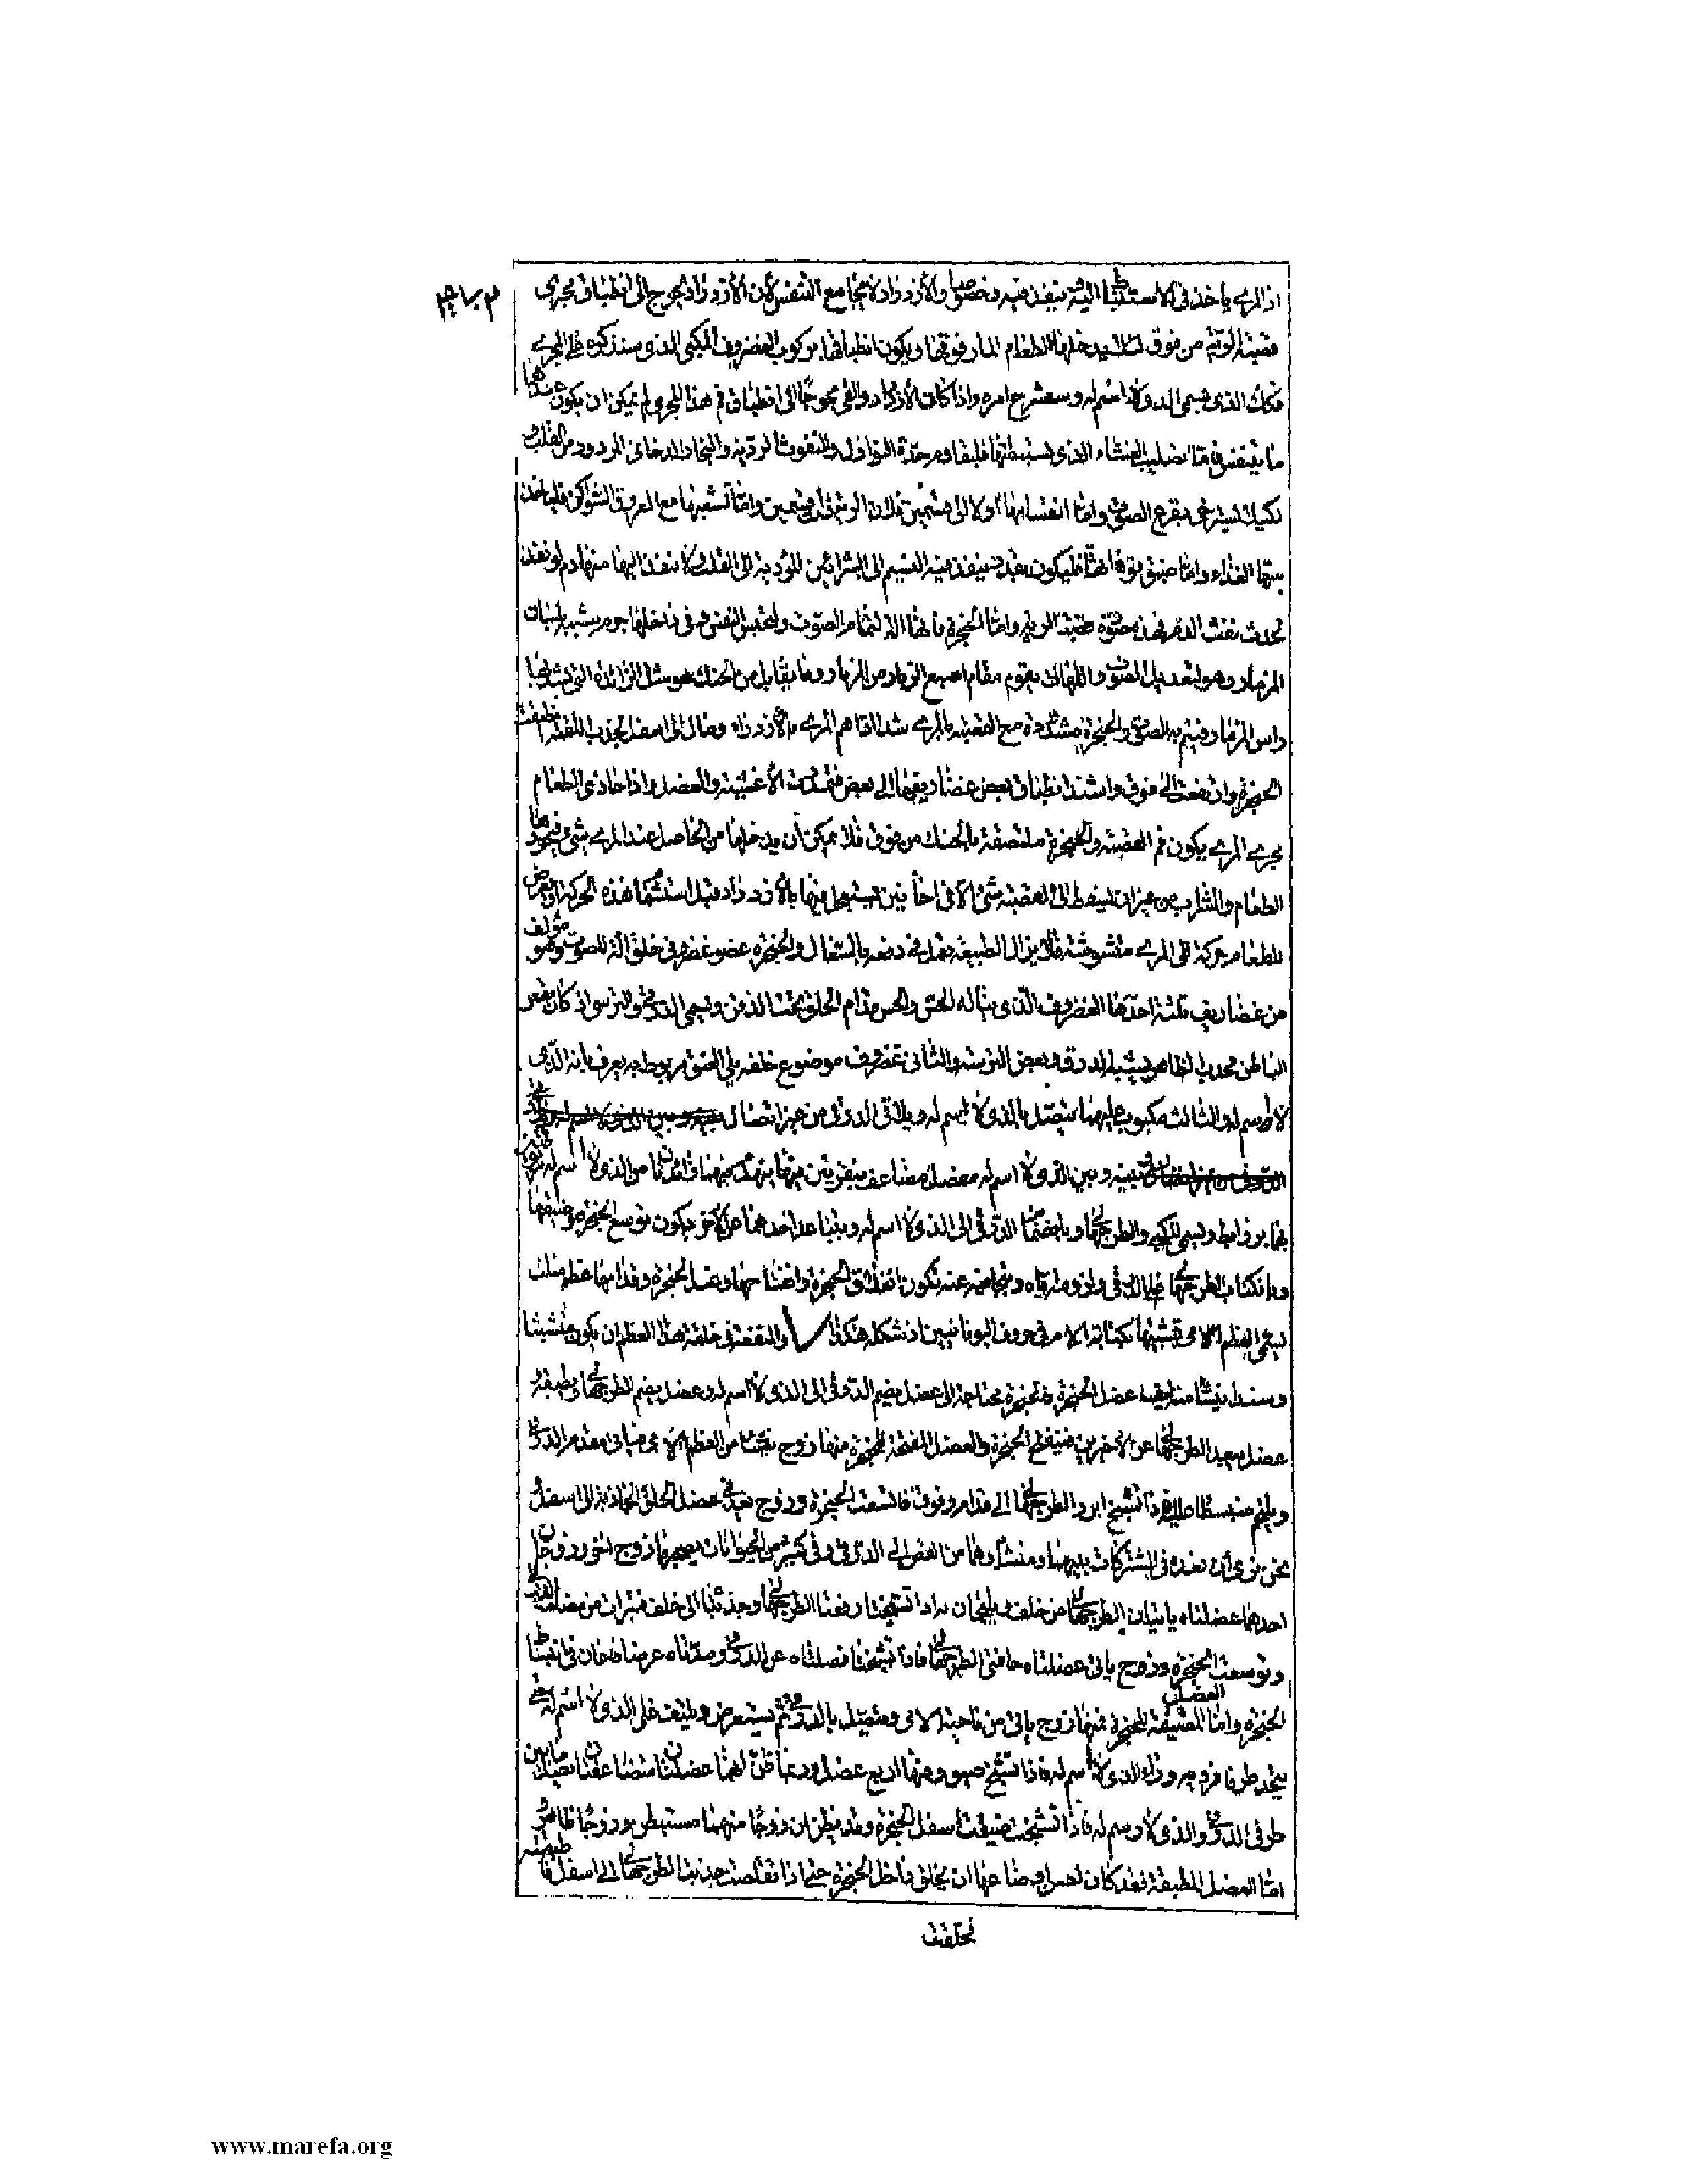 اذ المرى ياخذ فى الاستبطا اليه وينفذ فيه وخصوصا والازدراد لا يجامع التنفس لان الازدراد يحوج الى انطباق مجرى
قصبة الرية من فوق لئلا يدخلها الطعام المار فوقها ويكون انطباقها بركوب الغضروف المكبى الذى سنذكره على المجرى
وكذلك الذى يسمى الذى لا اسم له وسنشرح امره واذا كان الازدراد والقى محوجا الى انطباق فم هذا المجرى لم يمكن ان يكون عندهما
ما يتنفس فاما تصليب الغشاء الذى يستبطنها فليقاوم حدة النوازل والنفوث الردية والبخار الدخانى المردود من القلب و
لكيلا يسترخى بقرع الصوت واما انقسامها اولا الى قسمين فلان الرية قسمين واما تشعبها مع العروق السواكن فلياخذ
منها الغذاء واما ضيق فوهاتها فليكون بقدر ينفذ فيه النسيم الى الشرائين المؤدية الى القلب ولا ينفذ اليها منها دم لو نفذ
يحدث نفث الدم فهذه صورة قصبة الرية واما الحنجرة فانها الة لتمام الصوت ولتحبس النفس وفى داخلها جرم شبيه بلسان
المزمار وهو لتعديل الصوت واللهاة يقوم مقام اصبع الزمار من المزمار وما يقابله من الحنك هو مثل الزائدة التى تشد بها
راس المزمار فيتم به الصوت والحنجرة مشدودة مع القصبة بالمرى شدا اذا هم المرى بالازدراد ومال الى اسفل لجذب اللقمة انطبقت
الحنجرة وارتفعت الى فوق واشتد انطباق بعض غضاريفها الى بعض فتمددت الاغشية والعضل واذا حاذى الطعام
مجرى المرى يكون فم القصبة والحنجرة ملتصقة بالحنك من فوق فلا يمكن ان يدخلها من الحاصل عند المرى شى فيجوز
الطعام والشارب من غير ان يسقط الى القصبة شى الا فى احايين يستعجل فيها بالازدراد قبل استتمام هذه الحركة او يعرض
للطعام حركة الى المرى متشوشة فلا يزال الطبيعة تعمل فى دفعه بالسعال والحنجرة عضو غضروفى خلق الة للصوت وهو مؤلف
من غضاريف ثلثة احدها الغضروف الذى يناله الحس والجس قدام الحلق تحت الذقن ويسمى الدرقى والترسى اذ كان مقعر
الباطن محدب الظاهر يشبه الدرقة وبعض الترسة والثانى غضروف موضوع خلفه يلى العنق مربوط به يعرف بانه الذى
لا اسم له والثالث مكبوب عليهما يتصل بالذى لا اسم له ويلاقى الدرقى من غير اتصال
بينه وبين الذى لا اسم له مفصل مضاعف بنقرتين فيه تهندم فيهما زائدتان من الذى لا اسم له مربوطتين
بهما بروابط ويسمى المكبى والطرجهالى وبانضمام الدرقى الى الذى لا اسم له ويتباعد احدهما عن الاخر يكون توسع الحنجرة وضيقها
وبانكباب الطرجهالى على الدرقى ولزومه اياه وتجافيه عنه يكون انغلاق الحنجرة وانفتاحها وعند الحنجرة وقدامها عظم مثلث
يسمى العظم اللامى تشبيها بكتابة اللام فى حروف اليونانيين اذ شكله هكذا والمنفعة فى خلقة هذا العظم ان يكون متشبثا
وسندا ينشا منه ليف عضل الحنجرة والحنجرة محتاجة الى عضل يضم الدرقى الى الذى لا اسم له وعضل يضم الطرجهالى ويطبقه و
عضل يبعد الطرجهالى عن الاخرين فيفتح الحنجرة والعضل المفتحة للحنجرة منها زوج ينشا من العظم اللامى فياتى مقدم الدرقى
ويلتحم منبسطا عليه فاذا تشنج ابرز الطرجهالى الى قدام وفوق فاتسعت الحنجرة وزوج يعد فى عضل الحلق الجاذبة الى اسفل و
نحن نرى ان نعده فى المشتركات بينهما ومنشاوها من القص الى الدرقى وفى كثير من الحيوانات يصحبها زوج اخر وزوجان
احدهما عضلتاه ياتيان الطرجهالى من خلف ويلتحمان به اذا تشنجتا رفعتا الطرجهالى وجذبتا الى خلف فتبرات من مضامة الدرقى
وتوسعت الحنجرة وزوج ياتى عضلتاه حافتى الطرجهالى فاذا تشنجتا فصلتاه عن الدرقى ومدتاه عرضا فاعان فى انبساط
الحنجرة واما العضل المضيقة للحنجرة فمنها زوج ياتى من ناحية اللامى ويتصل بالدرقى ثم يستعرض ويلتف على الذى لا اسم له حتى
يتحد طرفا فرديه وراء الذى لا اسم له فاذا تشنج ضيق ومنها اربع عضل وربما ظن انهما عضلتان مضاعفتان يصل ما بين
طرفى الدرقى والذى لا اسم له فاذا تشنجت ضيقت اسفل الحنجرة وقد يظن ان زوجا منهما مستبطن وزوجا ظاهر و
اما العضل المطبقة فقد كان احسن اوضاعها ان يخلق داخل الحنجرة حتى اذا تقلصت جذبت الطرجهالى الى اسفل فاطبقته
فخلقت
www.marefa.org